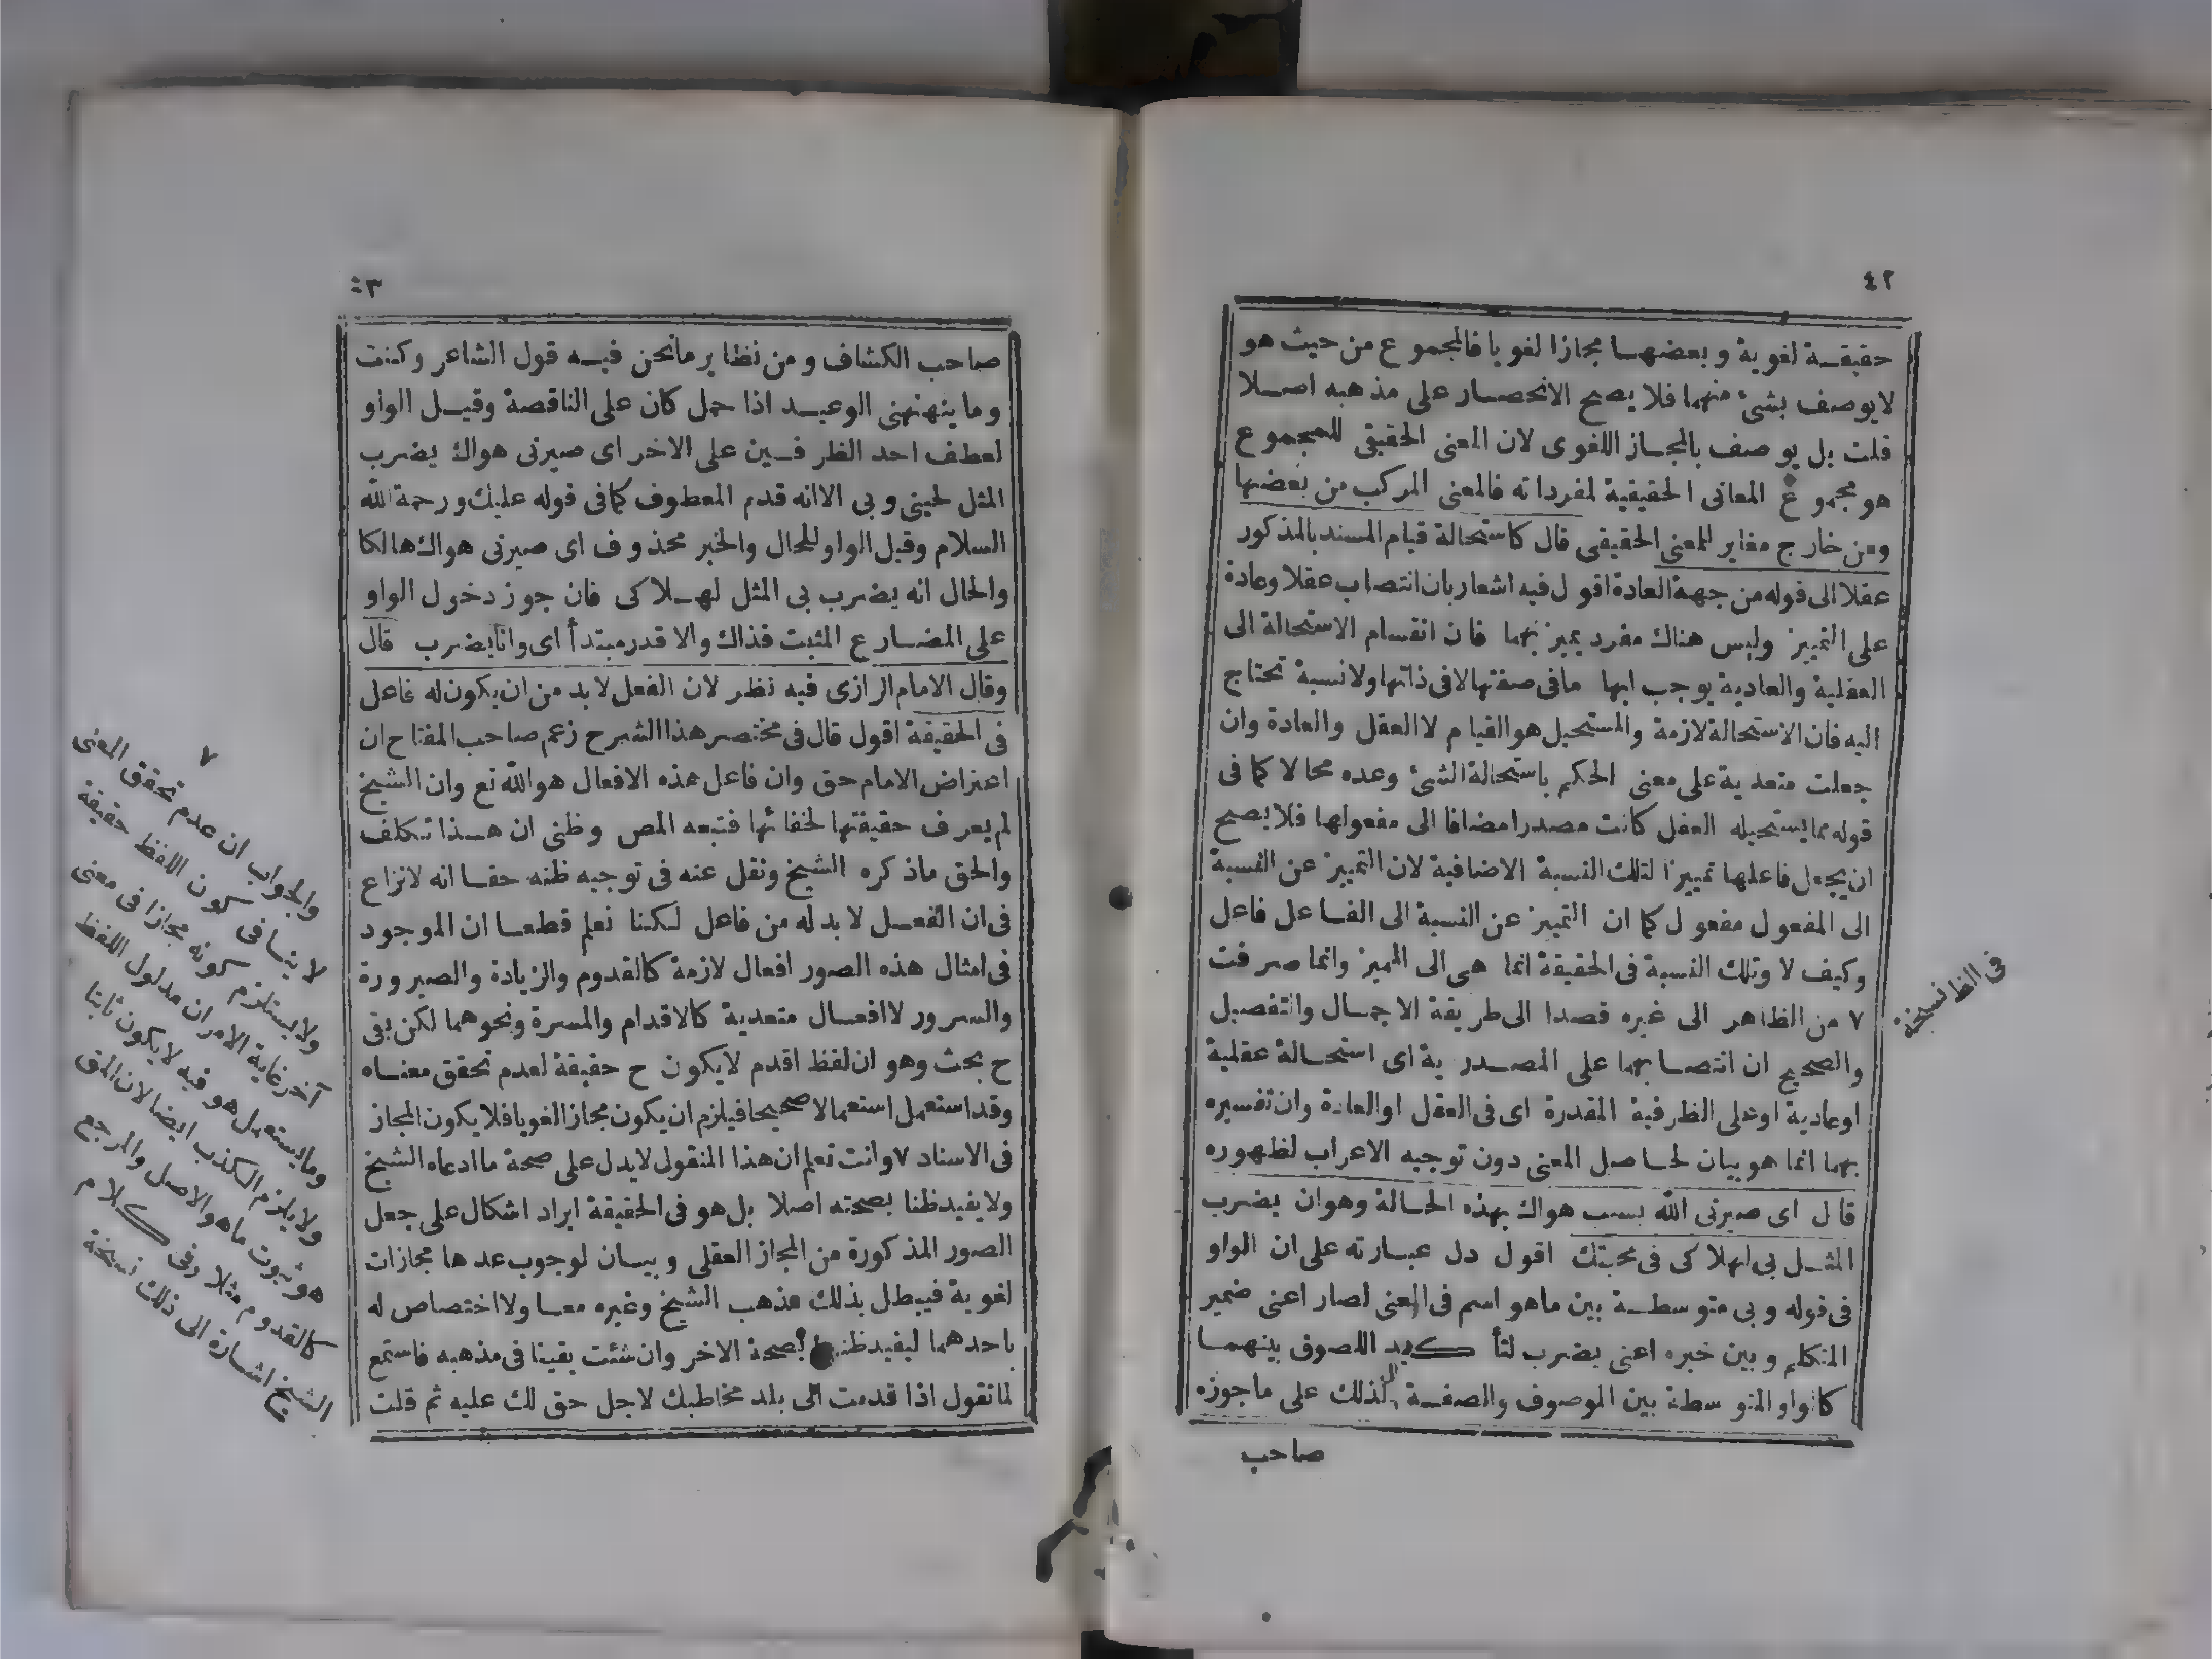 ٤٢
حقيقة لغوية وبعضها مجازا لغويا فالمجموع من حيث هو
لايوصف بشئ منهما فلا يصح الانحصار على مذهبه اصلا
قلت بل يوصف بالمجاز اللغوى لان المعنى الحقيقى للمجموع
هو مجموع المعانى الحقيقية لمفرداته فالمعنى المركب من بعضها
ومن خارج مغاير للمعنى الحقيقى قال كاستحالة قيام المسند بالمذكور
عقلا الى قوله من جهة العادة اقول فيه اشعار بان انتصاب عقلا وعادة
على التمييز وليس هناك مفرد يميز بهما فان انقسام الاستحالة الى
العقلية والعادية يوجب ابها ما فى صفتها لا فى ذاتها ولا نسبة تحتاج
اليه فان الاستحالة لازمة والمستحيل هو القيام لا العقل والعادة وان
جعلت متعدية على معنى الحكم باستحالة الشئ وعده محالا كما فى
قوله مما يستحيله العقل كانت مصدرا مضافا الى مفعولها فلا يصح
ان يجعل فاعلها تمييزا لتلك النسبة الاضافية لان التمييز عن النسبة
الى المفعول مفعول كما ان التمييز عن النسبة الى الفاعل فاعل
وكيف لا وتلك النسبة فى الحقيقة انما هى الى المميز وانما صرفت
٧ من الظاهر الى غيره قصدا الى طريقة الاجمال والتفصيل
والصحيح ان انتصابهما على المصدرية اى استحالة عقلية
او عادية او على الظرفية المقدرة اى فى العقل او العادة وان تفسيره
بهما انما هو بيان لحاصل المعنى دون توجيه الاعراب لظهوره
قال اى صيرنى الله بسبب هواك بهذه الحالة وهو ان يضرب
المثل بى لهلاكى فى محبتك اقول دل عبارته على ان الواو
فى قوله وبى متوسطة بين ما هو اسم فى المعنى لصار اعنى ضمير
المتكلم وبين خبره اعنى يضرب لتأكيد اللصوق بينهما
كالواو المتوسطة بين الموصوف والصفة لذلك على ما جوزه
صاحب
فى الظا نسيخه
٤٣
صاحب الكشاف ومن نظاير مانحن فيه قول الشاعر وكنت
وما ينهنهنى الوعيد اذا حمل كان على الناقصة وقيل الواو
لعطف احد الظرفين على الاخر اى صيرنى هواك يضرب
المثل لحينى وبى الا انه قدم المعطوف كما فى قوله عليك ورحمة الله
السلام وقيل الواو للحال والخبر محذوف اى صيرنى هواك هالكا
والحال انه يضرب بى المثل لهلاكى فان جوز دخول الواو
على المضارع المثبت فذاك والا قدر مبتدأ اى وانا يضرب قال
وقال الامام الرازى فيه نظر لان الفعل لا بد من ان يكون له فاعل
فى الحقيقة اقول قال فى مختصر هذا الشرح زعم صاحب المفتاح ان
اعتراض الامام حق وان فاعل هذه الافعال هو الله تع وان الشيخ
لم يعرف حقيقتها لخفائها فتبعه المص وظنى ان هذا تكلف
والحق ماذكره الشيخ ونقل عنه فى توجيه ظنه حقا انه لانزاع
فى ان الفعل لا بد له من فاعل لكنا نعلم قطعا ان الموجود
فى امثال هذه الصور افعال لازمة كالقدوم والزيادة والصيرورة
والسرور لا افعال متعدية كالاقدام والمسرة ونحوهما لكن بقى
ح بحث وهو ان لفظ اقدم لايكون ح حقيقة لعدم تحقق معناه
وقد استعمل استعمالا صحيحا فيلزم ان يكون مجازا لغويا فلا يكون المجاز
فى الاسناد ٧ وانت تعلم ان هذا المنقول لايدل على صحة ما ادعاه الشيخ
ولا يفيد ظنا بصحته اصلا بل هو فى الحقيقة ايراد اشكال على جعل
الصور المذكورة من المجاز العقلى وبيان لوجوب عدها مجازات
لغوية فيبطل بذلك مذهب الشيخ وغيره معا ولا اختصاص له
باحدهما ليفيد ظنه بصحة الاخر وان شئت يقينا فى مذهبه فاستمع
لما نقول اذا قدمت الى بلد مخاطبك لاجل حق لك عليه ثم قلت
٧
والجواب ان عدم تحقق المعنى
لا ينافى كون اللفظ حقيقة
ولا يستلزم كونه مجازا فى معنى
آخر غاية الامر ان مدلول اللفظ
وما يستعمل هو فيه لايكون ثابتا
ولا يلزم الكذب ايضا لان المق
هو ثبوت ما هو الاصل والمرجع
كالقدوم مثلا وفى كلام
الشيخ اشارة الى ذلك نسيخة